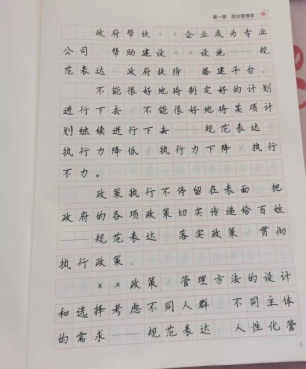 第一章
政府帮扶××企业成为专业
公司 帮助建设××设施——规
范表达 政府扶持 搭建平台。
不能很好地将制定好的计划
进行下去/不能很好地将某项计
划继续进行下去——规范表达
执行力降低/执行力下降/执行
不力。
政策执行不停留在表面 把
政府的各项政策切实传递给百姓
——规范表达 落实政策/贯彻
执行政策。
××政策/管理方法的设计
和选择考虑不同人群 不同主体
的需求——规范表达 人性化管